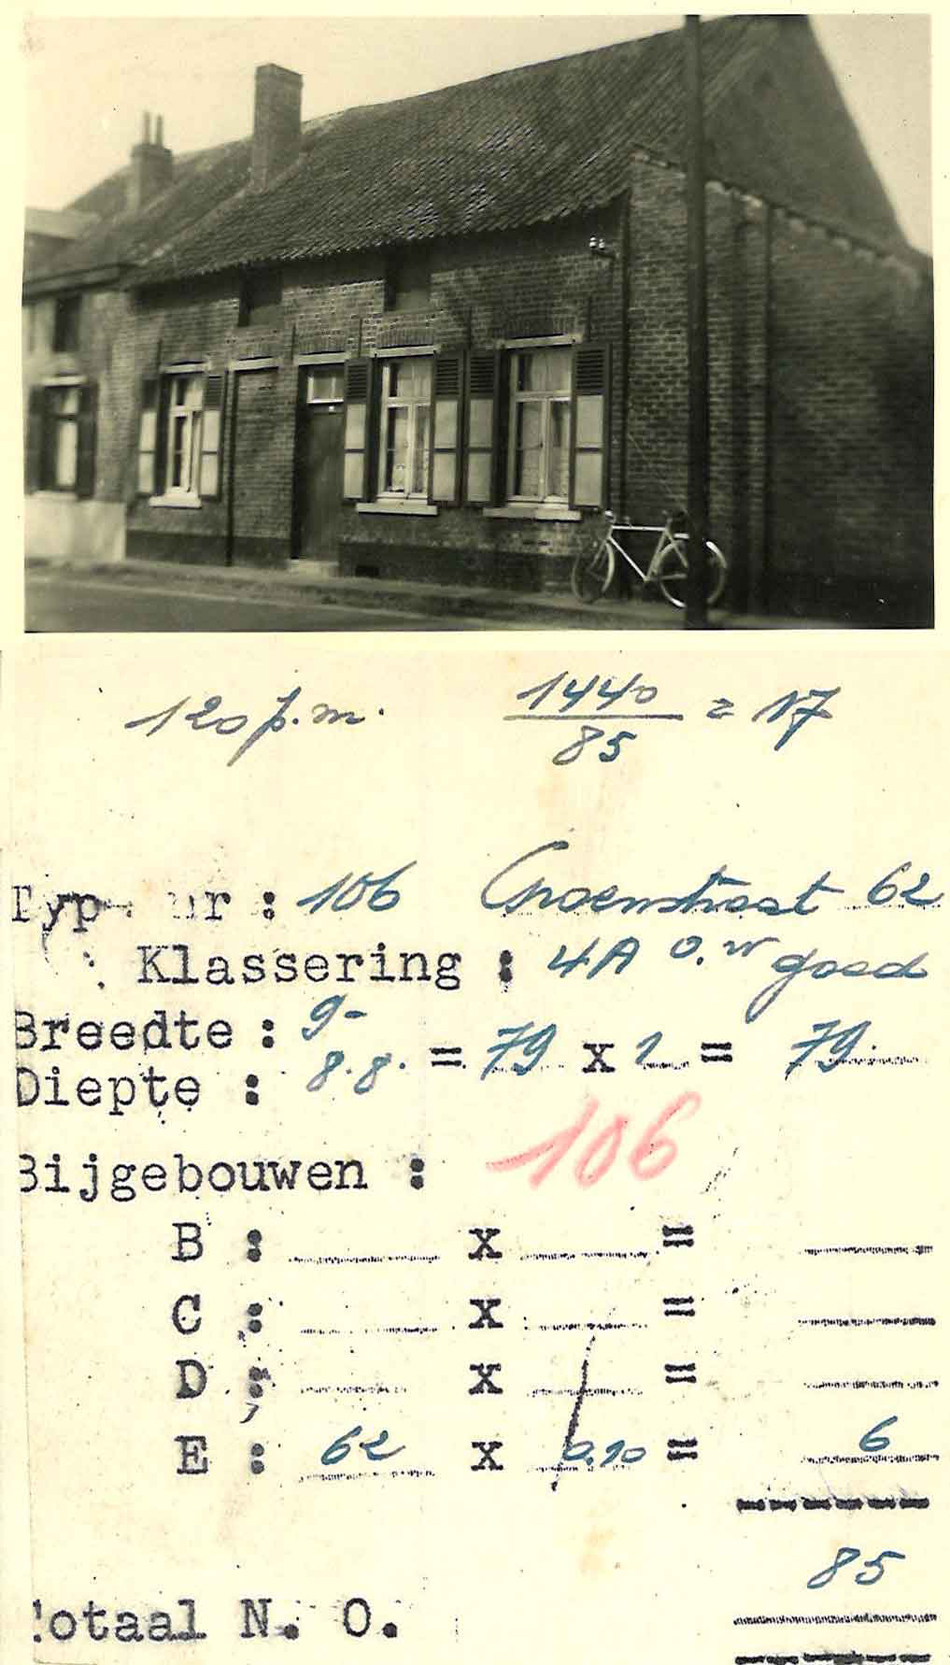 120 p.m. 1440 / 85 = 17
Typ nr : 106 Groenstraat 62
Klassering : 4A o.w goed
Breedte : 9-
Diepte : 8.8. = 79 x 1 = 79
Bijgebouwen : 106
B : x =
C : x =
D : x =
E : 62 x 0.10 = 6
85
Totaal N. O.